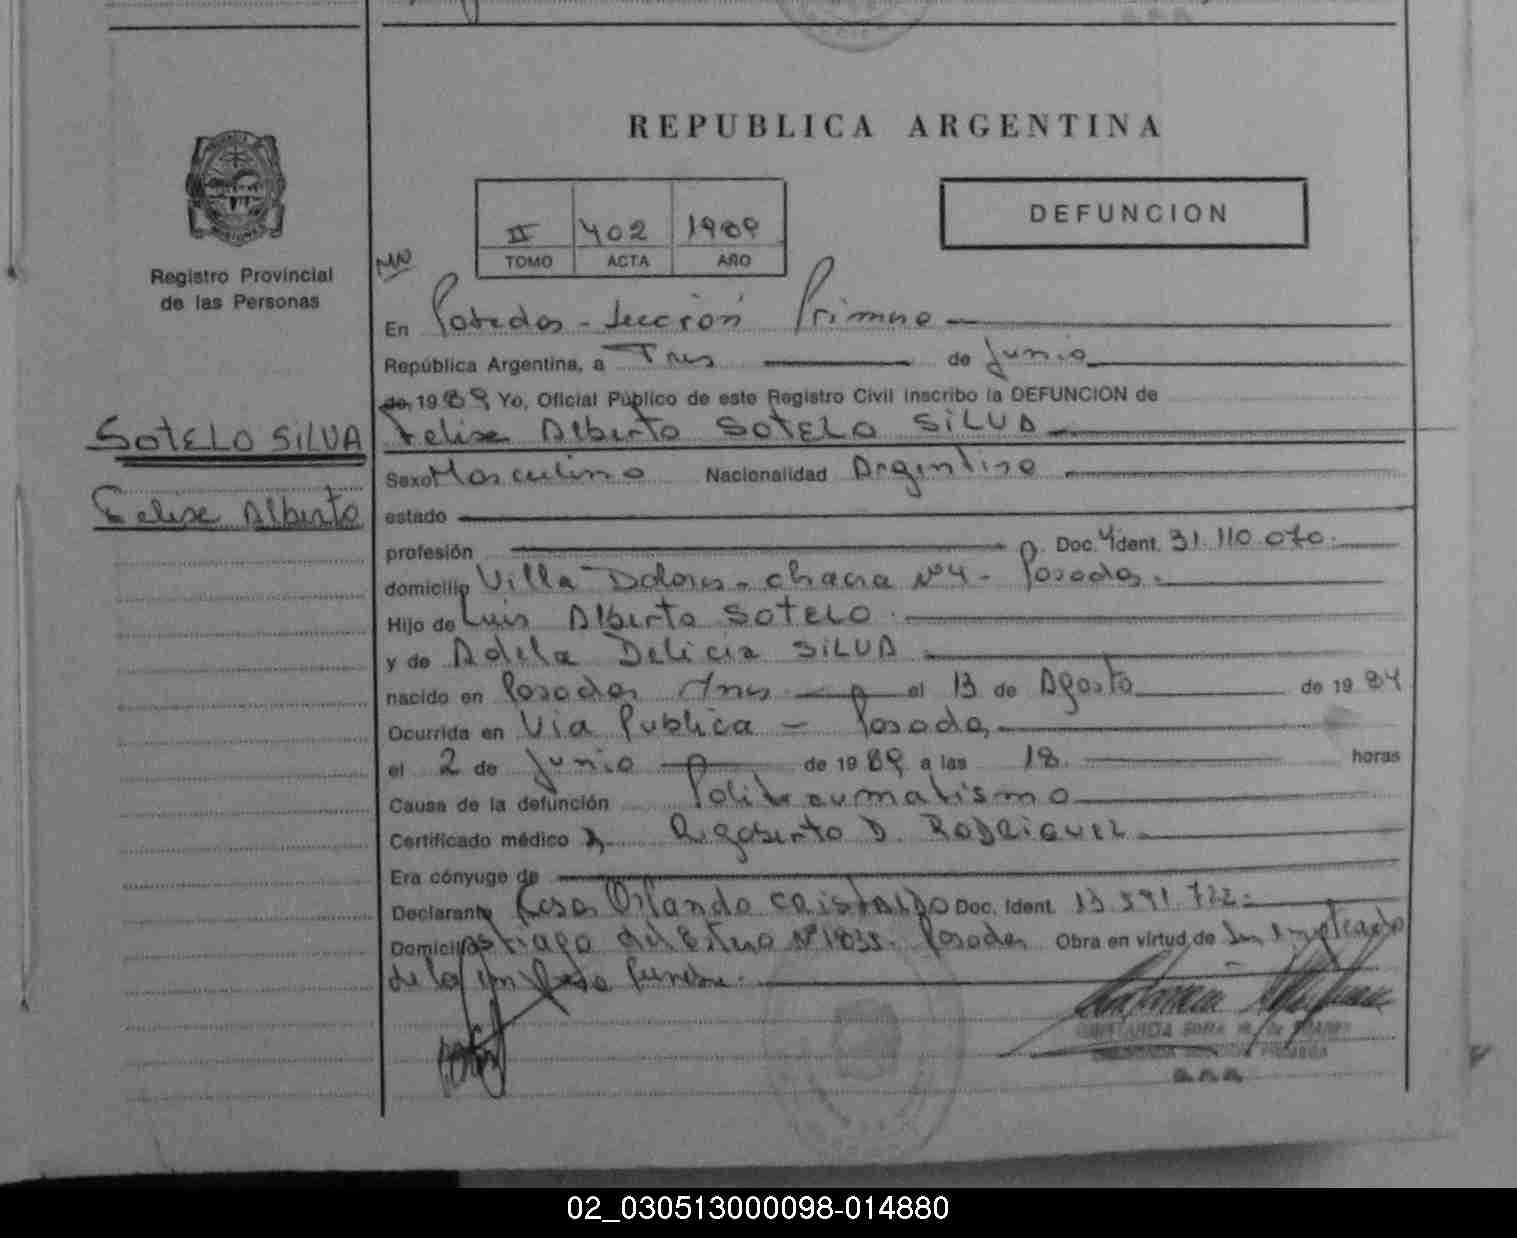 REPUBLICA ARGENTINA
DEFUNCION
II 402 1989
TOMO ACTA AÑO
Registro Provincial
de las Personas
En Posadas - Sección Primera
República Argentina, a Tres de Junio
de 1989 Yo, Oficial Público de este Registro Civil inscribo la DEFUNCION de
SOTELO SILVA
Felise Alberto SOTELO SILVA
Sexo Masculino Nacionalidad Argentino
Felise Alberto
estado
profesión Doc. Ident. 31.110.070.
domicilio Villa Dolores - chacra Nº 4 - Posadas.
Hijo de Luis Alberto SOTELO.
y de Adela Delicia SILVA
nacido en Posadas Mnes el 13 de Agosto de 1984
Ocurrida en Via Publica - Posadas
el 2 de Junio de 1989 a las 18 horas
Causa de la defunción Politraumatismo
Certificado médico Rigoberto D. RODRIGUEZ
Era cónyuge de
Declarante Orlando CRISTALDO Doc. Ident. 13.591.722
Domicilio Stiago del Estero Nº 1835. Posadas Obra en virtud de Ser empleado
de la empresa funebre.
02_030513000098-014880